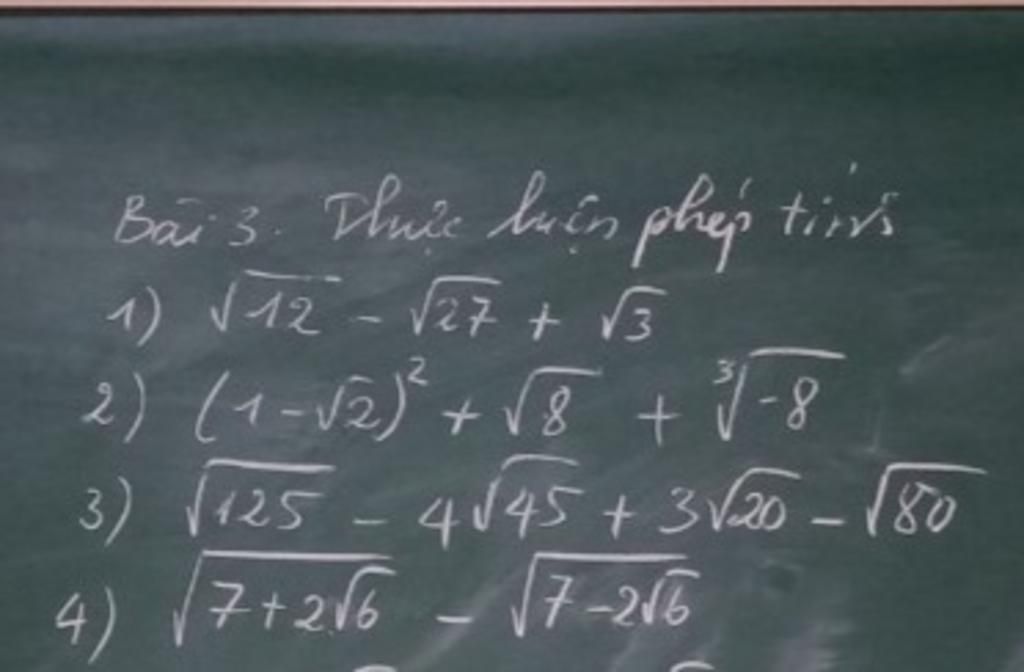 Bài 3. Thực hiện phép tính
1) √12 - √27 + √3
2) (1-√2)² + √8 + ³√-8
3) √125 - 4√45 + 3√20 - √80
4) √(7+2√6) - √(7-2√6)